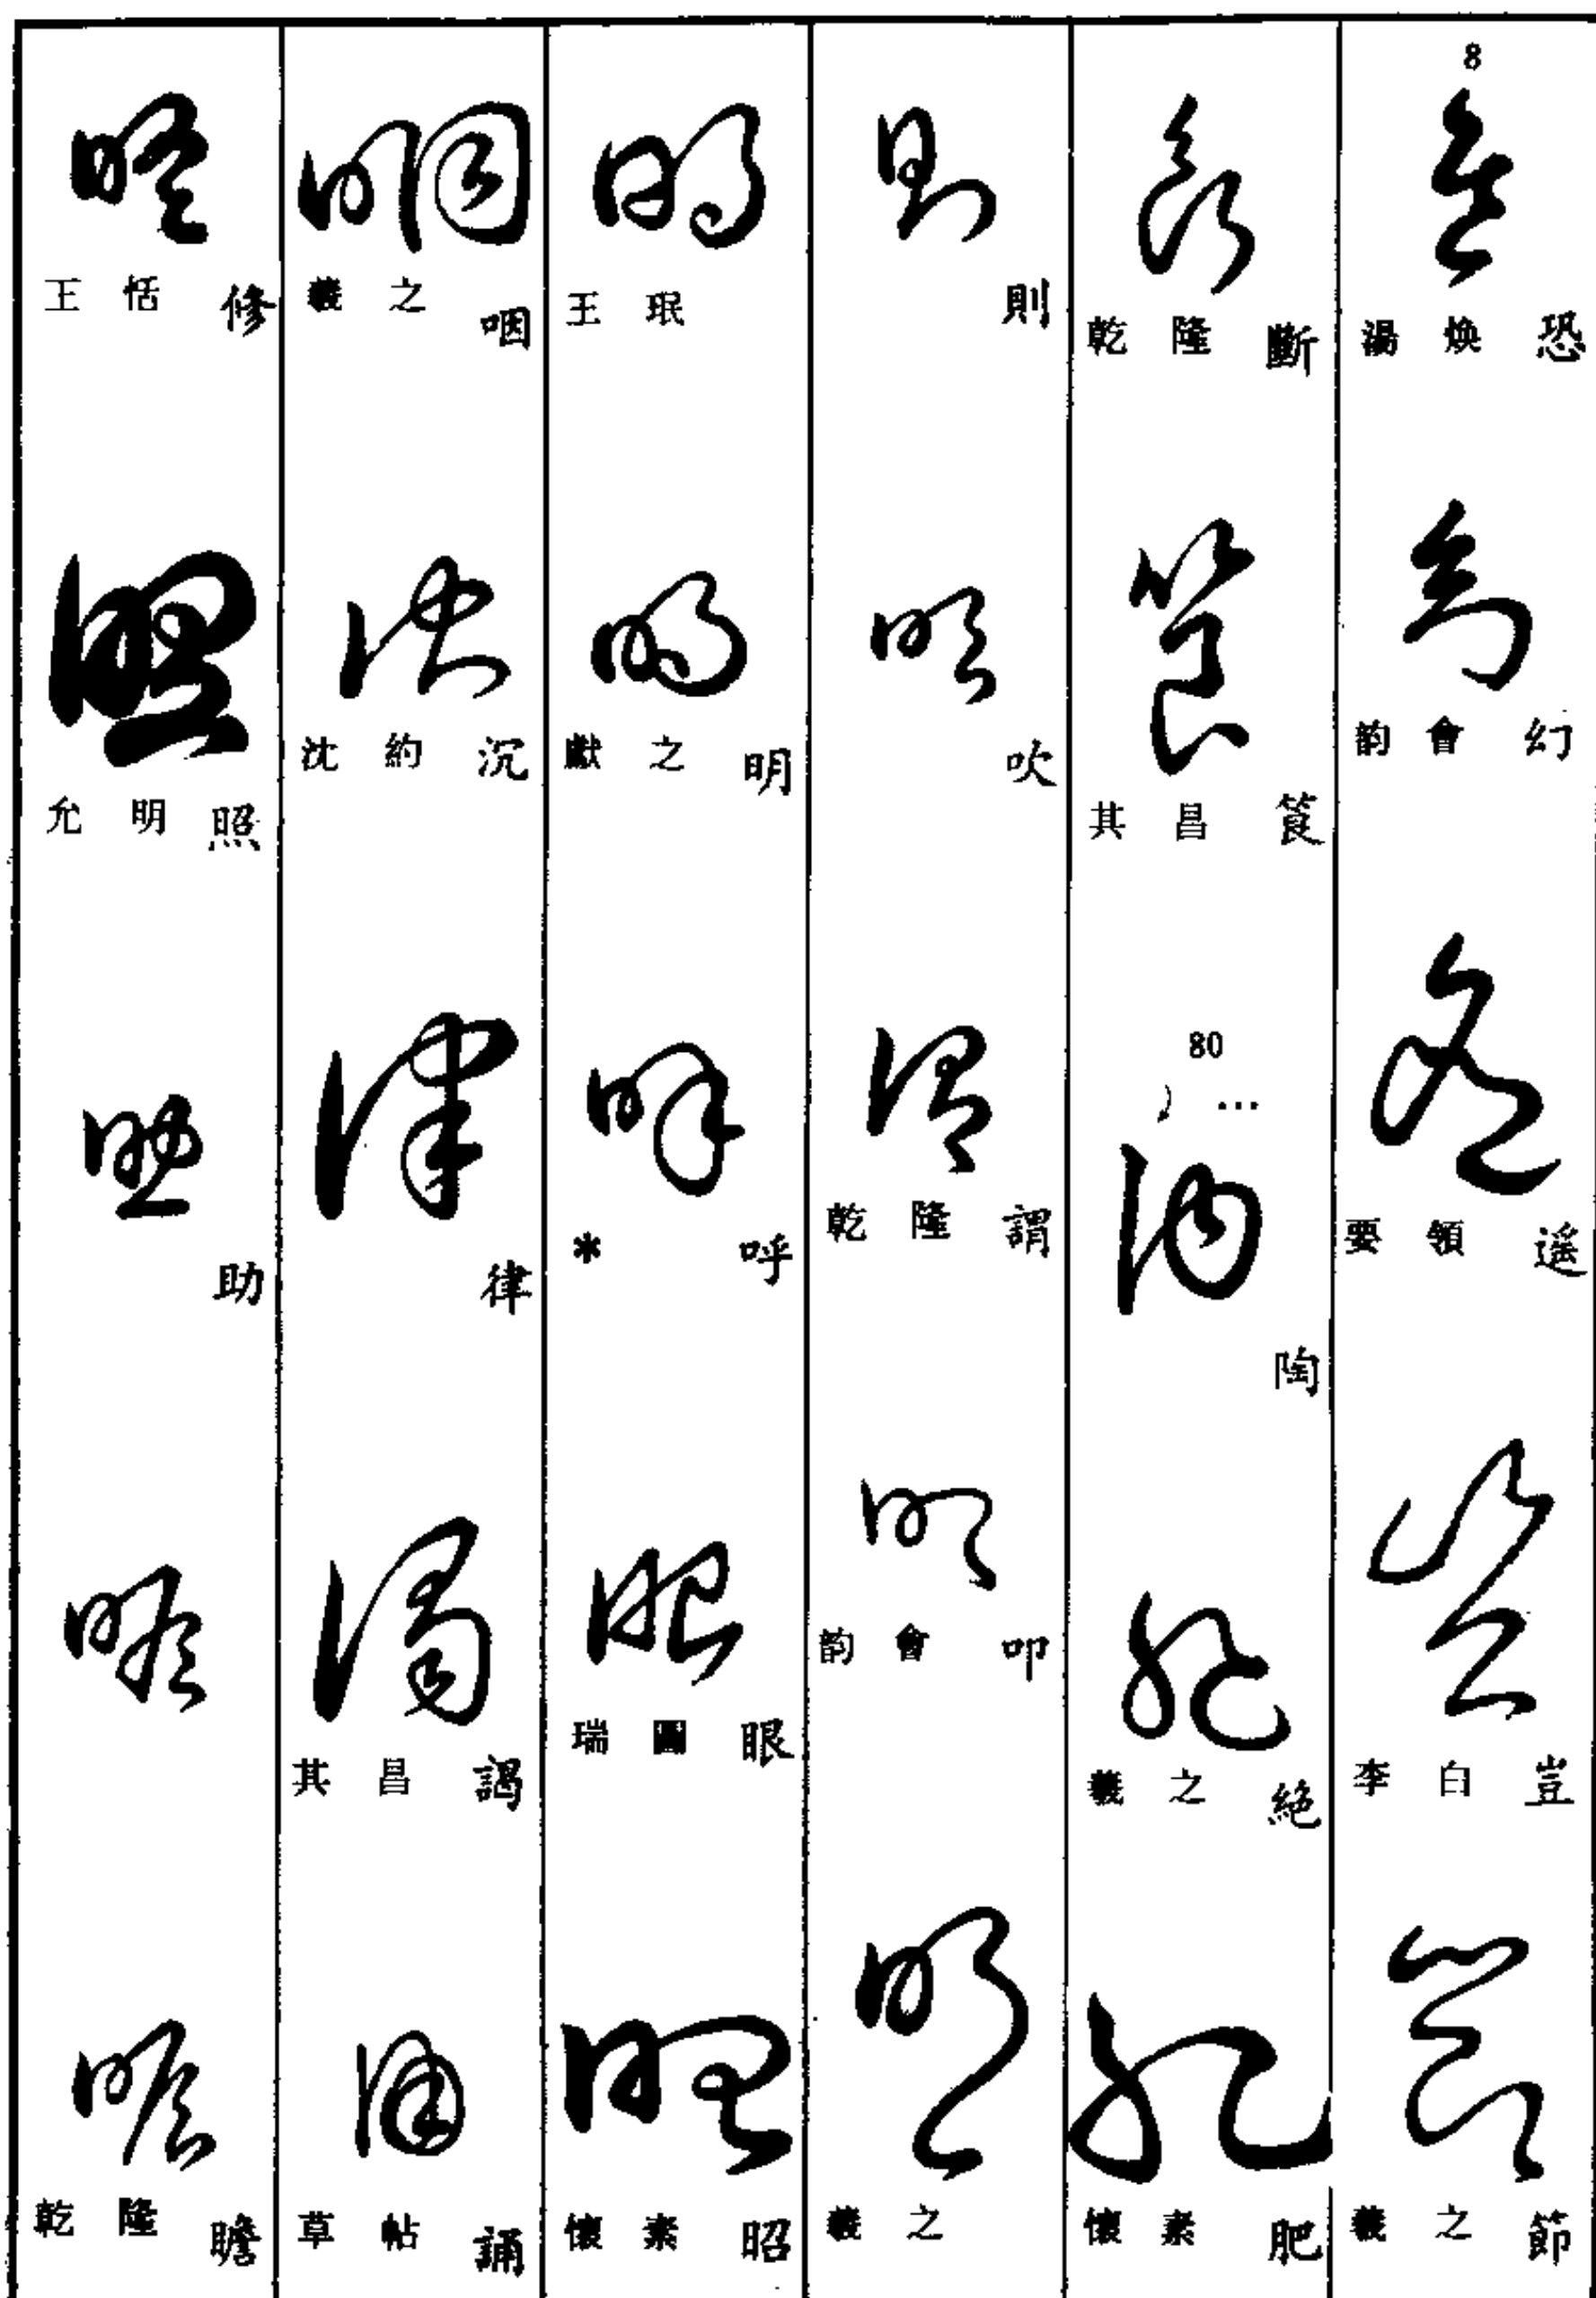 8
湯煥 恐
韵會 幻
要領 遥
李白 豈
羲之 節
乾隆 斷
其昌 筤
80
...
陶
羲之 絶
懷素 肥
則
吹
乾隆 謂
韵會 叩
羲之
王珉
獻之 明
* 呼
瑞圖 眼
懷素 昭
羲之 咽
沈約 沉
律
其昌 謁
草帖 誦
王恬 修
允明 照
助
乾隆 瞻